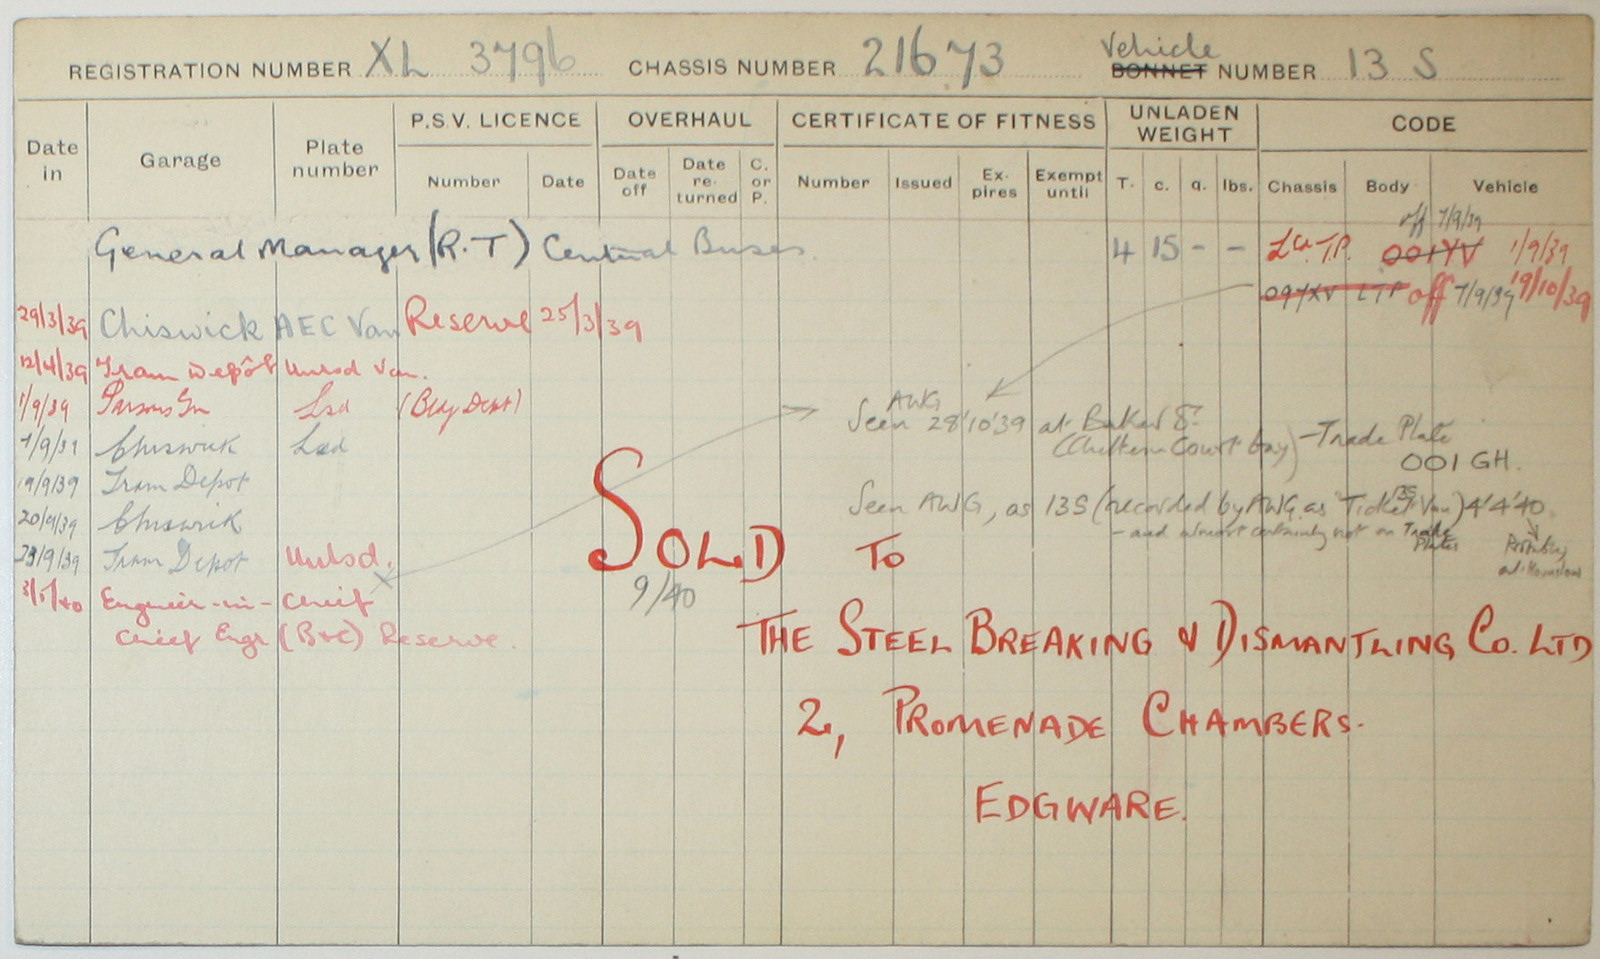 REGISTRATION NUMBER XL 3796 CHASSIS NUMBER 21673 Vehicle BONNET NUMBER 13 S
Date in Garage Plate number P.S.V. LICENCE OVERHAUL CERTIFICATE OF FITNESS UNLADEN WEIGHT CODE
Number Date Date off Date re-turned C. or P. Number Issued Ex-pires Exempt until T. c. q. lbs. Chassis Body Vehicle
off 7/9/39
General Manager (R.T) Central Buses. 4 15 - - T.P. 001YV 1/9/39
097XV LTP off 7/9/39 19/10/39
29/3/39 Chiswick AEC Van Reserve 25/3/39
12/4/39 Tram Depôt Unlsd Van.
1/9/39 Parsons Gn Lsd (Bdy Dept)
7/9/39 Chiswick Lsd
19/9/39 Tram Depot
20/9/39 Chiswick
23/9/39 Tram Depot Unlsd.
3/5/40 Engineer-in-Chief
Chief Engr (B+C) Reserve.
AWG
Seen 28'10'39 at Baker St
(Chiltern Court bay) - Trade Plate
001 GH.
Seen AWG, as 13S (recorded by AWG as "Ticket Van") 4'4'40
13S
- and almost certainly not on Trade Plates
Probably at Hounslow
SOLD TO
9/40
THE STEEL BREAKING & DISMANTLING CO. LTD
2, PROMENADE CHAMBERS.
EDGWARE.